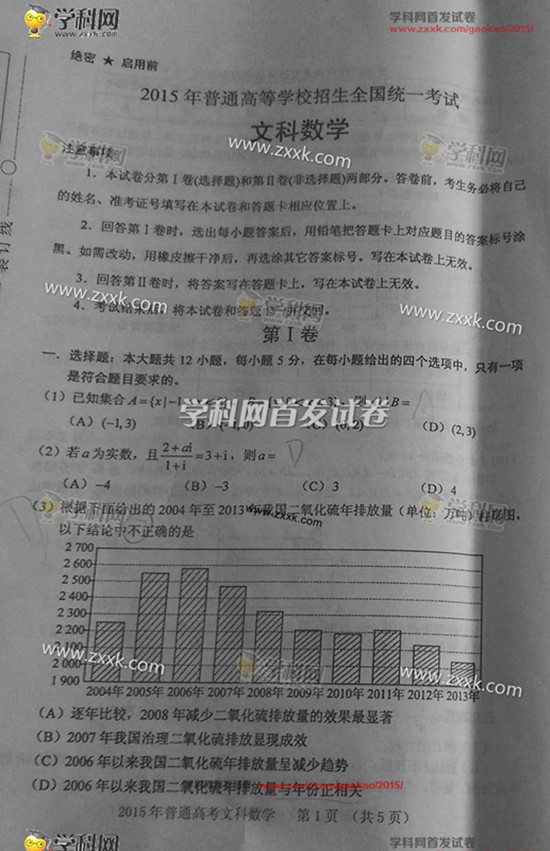 学科网
www.zxxk.com
学科网首发试卷
www.zxxk.com/gaokao/2015/
绝密 ★ 启用前
2015 年普通高等学校招生全国统一考试
文科数学
注意事项:
1. 本试卷分第Ⅰ卷(选择题)和第Ⅱ卷(非选择题)两部分。答卷前,考生务必将自己
的姓名、准考证号填写在本试卷和答题卡相应位置上。
2. 回答第Ⅰ卷时,选出每小题答案后,用铅笔把答题卡上对应题目的答案标号涂
黑。如需改动,用橡皮擦干净后,再选涂其它答案标号。写在本试卷上无效。
3. 回答第Ⅱ卷时,将答案写在答题卡上,写在本试卷上无效。
4. 考试结束后,将本试卷和答题卡一并交回。
第Ⅰ卷
一. 选择题:本大题共 12 小题,每小题 5 分,在每小题给出的四个选项中,只有一项
是符合题目要求的。
(1) 已知集合 A={x|-1 B=
学科网首发试卷
(A) (-1,3) (B) (C) (0,2) (D) (2,3)
(2) 若 a 为实数,且 (2+ai)/(1+i)=3+i,则 a= D
(A) -4 (B) -3 (C) 3 (D) 4
(3) 根据下面给出的 2004 年至 2013 年我国二氧化硫年排放量(单位:万吨)柱形图,
以下结论中不正确的是
2 700
2 600
2 500
2 400
2 300
2 200
2 100
2 000
1 900
2004年 2005年 2006年 2007年 2008年 2009年 2010年 2011年 2012年 2013年
(A) 逐年比较,2008 年减少二氧化硫排放量的效果最显著
(B) 2007 年我国治理二氧化硫排放显现成效
(C) 2006 年以来我国二氧化硫年排放量呈减少趋势
(D) 2006 年以来我国二氧化硫年排放量与年份正相关
2015 年普通高考文科数学 第 1 页 (共 5 页)
学科网
www.zxxk.com
学科网首发试卷
www.zxxk.com/gaokao/2015/